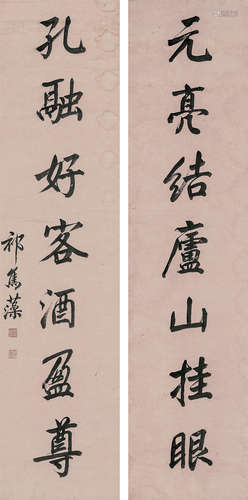 元亮結廬山挂眼
孔融好客酒盈尊
祁寯藻